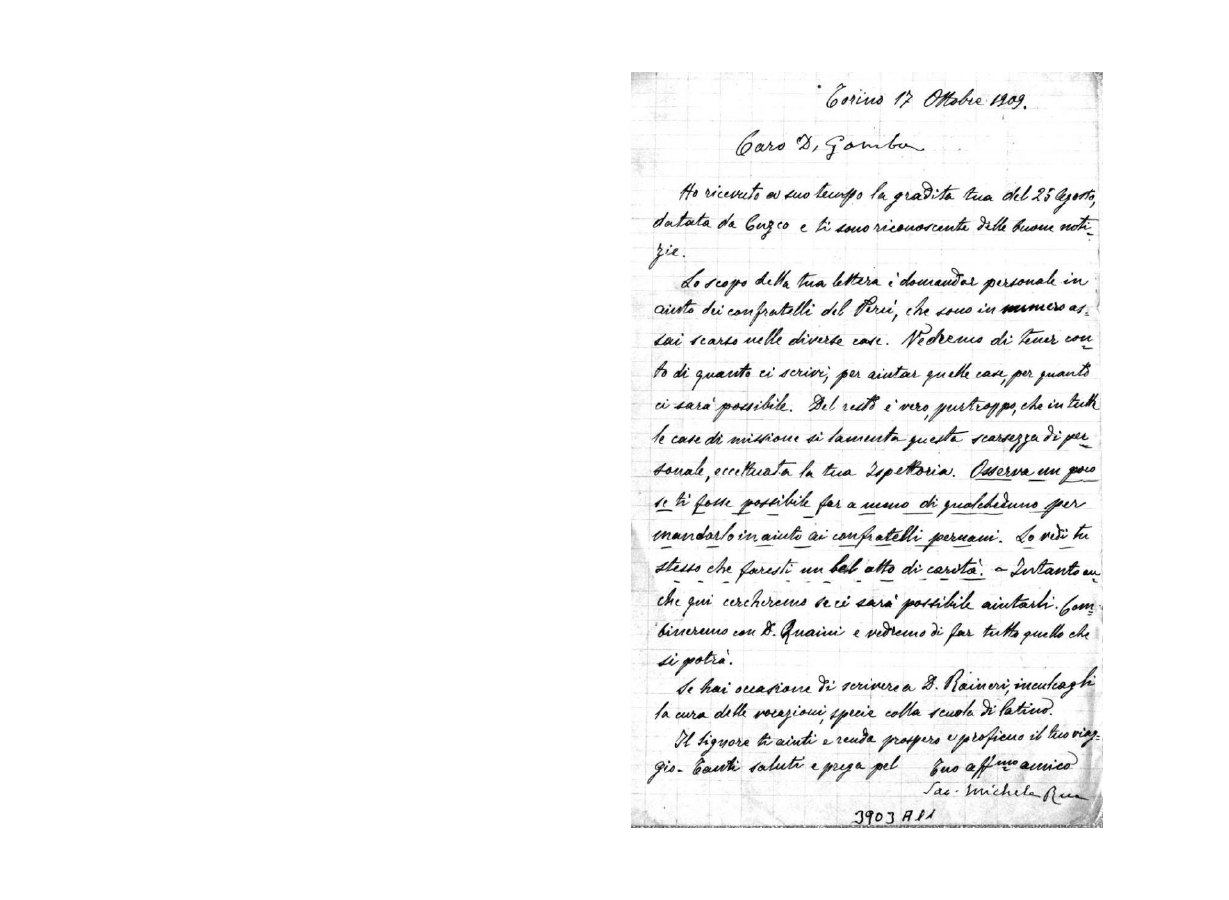 Torino 17 Ottobre 1909.
Caro D. Gamba
Ho ricevuto a suo tempo la gradita tua del 25 Agosto,
datata da Cuzco e ti sono riconoscente delle buone noti-
zie.
Lo scopo della tua lettera è domandar personale in
aiuto dei confratelli del Perú, che sono in numero as-
sai scarso nelle diverse case. Vedremo di tener con-
to di quanto ci scrivi, per aiutar quelle case, per quanto
ci sarà possibile. Del resto è vero, purtroppo, che in tutte
le case di missione si lamenta questa scarsezza di per-
sonale, eccettuata la tua Ispettoria. Osserva un poco
se ti fosse possibile far a meno di qualcheduno per
mandarlo in aiuto ai confratelli peruani. Lo vedi tu
stesso che faresti un bel atto di carità. - Intanto an-
che qui cercheremo se ci sarà possibile aiutarli. Com-
bineremo con D. Quaini e vedremo di far tutto quello che
si potrà.
Se hai occasione di scrivere a D. Raineri, inculcagli
la cura delle vocazioni, specie colla scuola di latino.
Il Signore ti aiuti e renda prospero e proficuo il tuo viag-
gio - Tanti saluti e prega pel Tuo aff.mo amico
Sac. Michele Rua
3903 A11